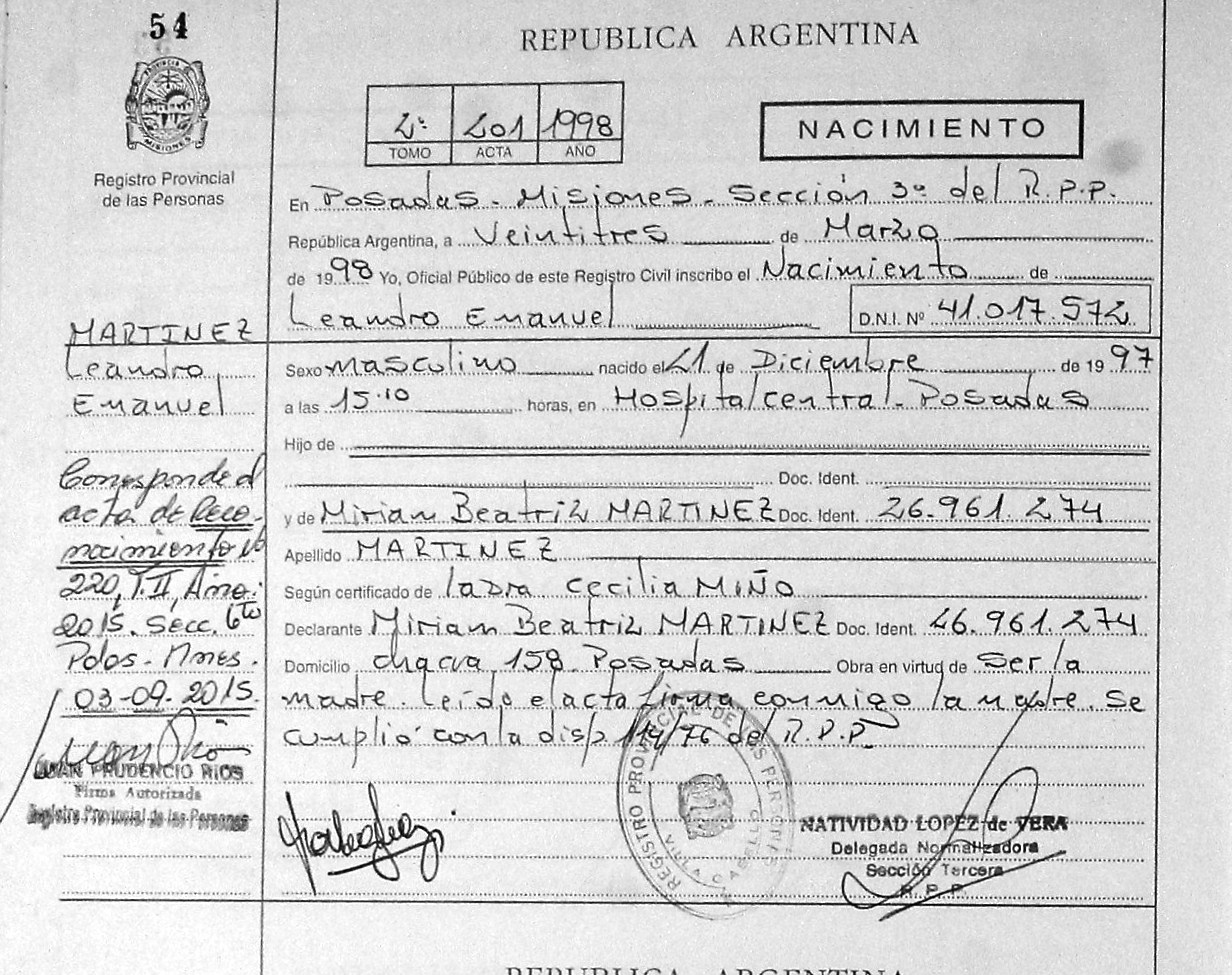 54
REPUBLICA ARGENTINA
PROVINCIA DE
MISIONES
Registro Provincial
de las Personas
2º 201 1998
TOMO ACTA AÑO
NACIMIENTO
En Posadas - Misiones - Sección 3º del R.P.P.
República Argentina, a Veintitres de Marzo
de 1998 Yo, Oficial Público de este Registro Civil inscribo el Nacimiento de
Leandro Emanuel D.N.I. Nº 41.017.572
Sexo masculino nacido el 21 de Diciembre de 1997
a las 15.10 horas, en Hospital central - Posadas
Hijo de
Doc. Ident.
y de Miriam Beatriz MARTINEZ Doc. Ident. 26.961.274
Apellido MARTINEZ
Según certificado de la Dra Cecilia MIÑO
Declarante Miriam Beatriz MARTINEZ Doc. Ident. 26.961.274
Domicilio chacra 158 Posadas Obra en virtud de Ser la
madre. Leído el acta firma conmigo la madre. Se
cumplió con la disp 114/76 del R.P.P
MARTINEZ
Leandro
Emanuel
Corresponde al
acta de Reco-
nocimiento Nº
220, T.II, Año:
2015. Secc. 6ta
Pdas - Mnes.
03-09-2015.
JUAN PRUDENCIO RIOS
Firma Autorizada
Registro Provincial de las Personas
REGISTRO PROVINCIAL DE LAS PERSONAS
VILLA CABELLO
NATIVIDAD LOPEZ de VERA
Delegada Normalizadora
Sección Tercera
R. P. P.
REPUBLICA ARGENTINA